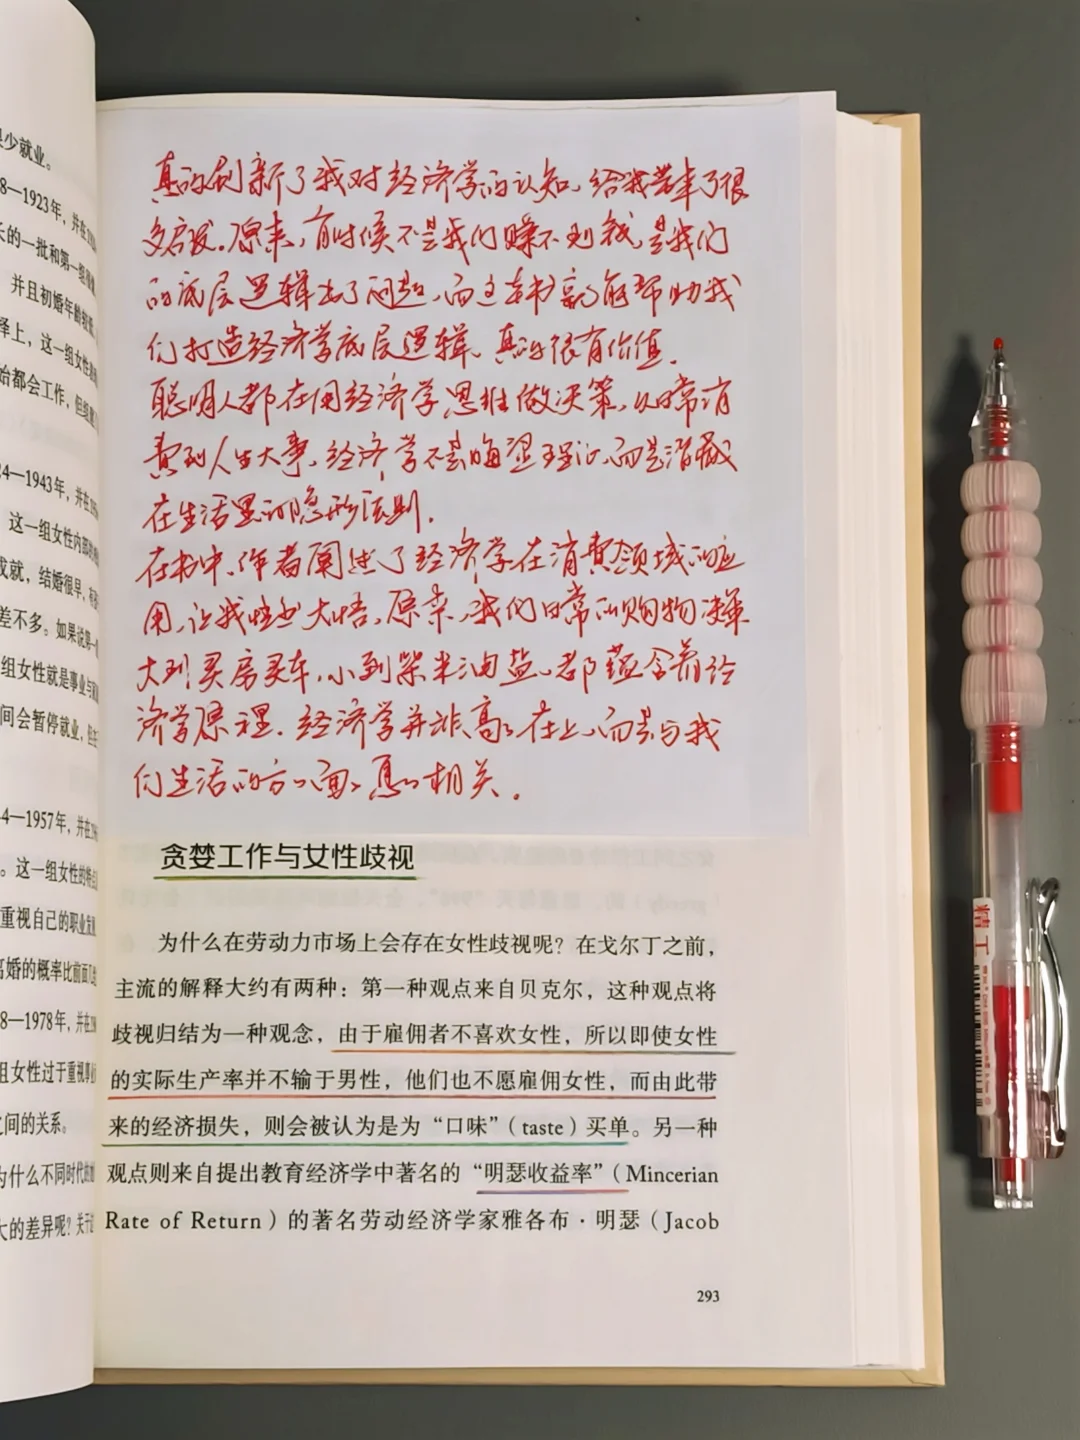 是少就业。
8—1923年，并在
长的一批和第一组
并且初婚年龄较
择上，这一组女性
始都会工作，但
24—1943年，并在
这一组女性内部
成就，结婚很早，
差不多。如果说第一
组女性就是事业与
间会暂停就业，但
4—1957年，并在
。这一组女性的特点
重视自己的职业发展
离婚的概率比前面
8—1978年，并在
组女性过于重视事业
之间的关系。
为什么不同时代的
大的差异呢？关于
真的刷新了我对经济学的认知，给我带来了很
多启发。原来，有时候不是我们赚不到钱，是我们
的底层逻辑出了问题，而这本书就能帮助我
们打造经济学底层逻辑，真的很有价值。
聪明人都在用经济学思维做决策，从日常消
费到人生大事，经济学不是晦涩理论，而是潜藏
在生活里的隐形法则。
在书中，作者阐述了经济学在消费领域的应
用，让我恍然大悟，原来，我们日常的购物决策
大到买房买车，小到柴米油盐，都蕴含着经
济学原理。经济学并非高高在上，而是与我
们生活的方方面面息息相关。
贪婪工作与女性歧视
为什么在劳动力市场上会存在女性歧视呢？在戈尔丁之前，
主流的解释大约有两种：第一种观点来自贝克尔，这种观点将
歧视归结为一种观念，由于雇佣者不喜欢女性，所以即使女性
的实际生产率并不输于男性，他们也不愿雇佣女性，而由此带
来的经济损失，则会被认为是为“口味”（taste）买单。另一种
观点则来自提出教育经济学中著名的“明瑟收益率”（Mincerian
Rate of Return）的著名劳动经济学家雅各布·明瑟（Jacob
293
精工